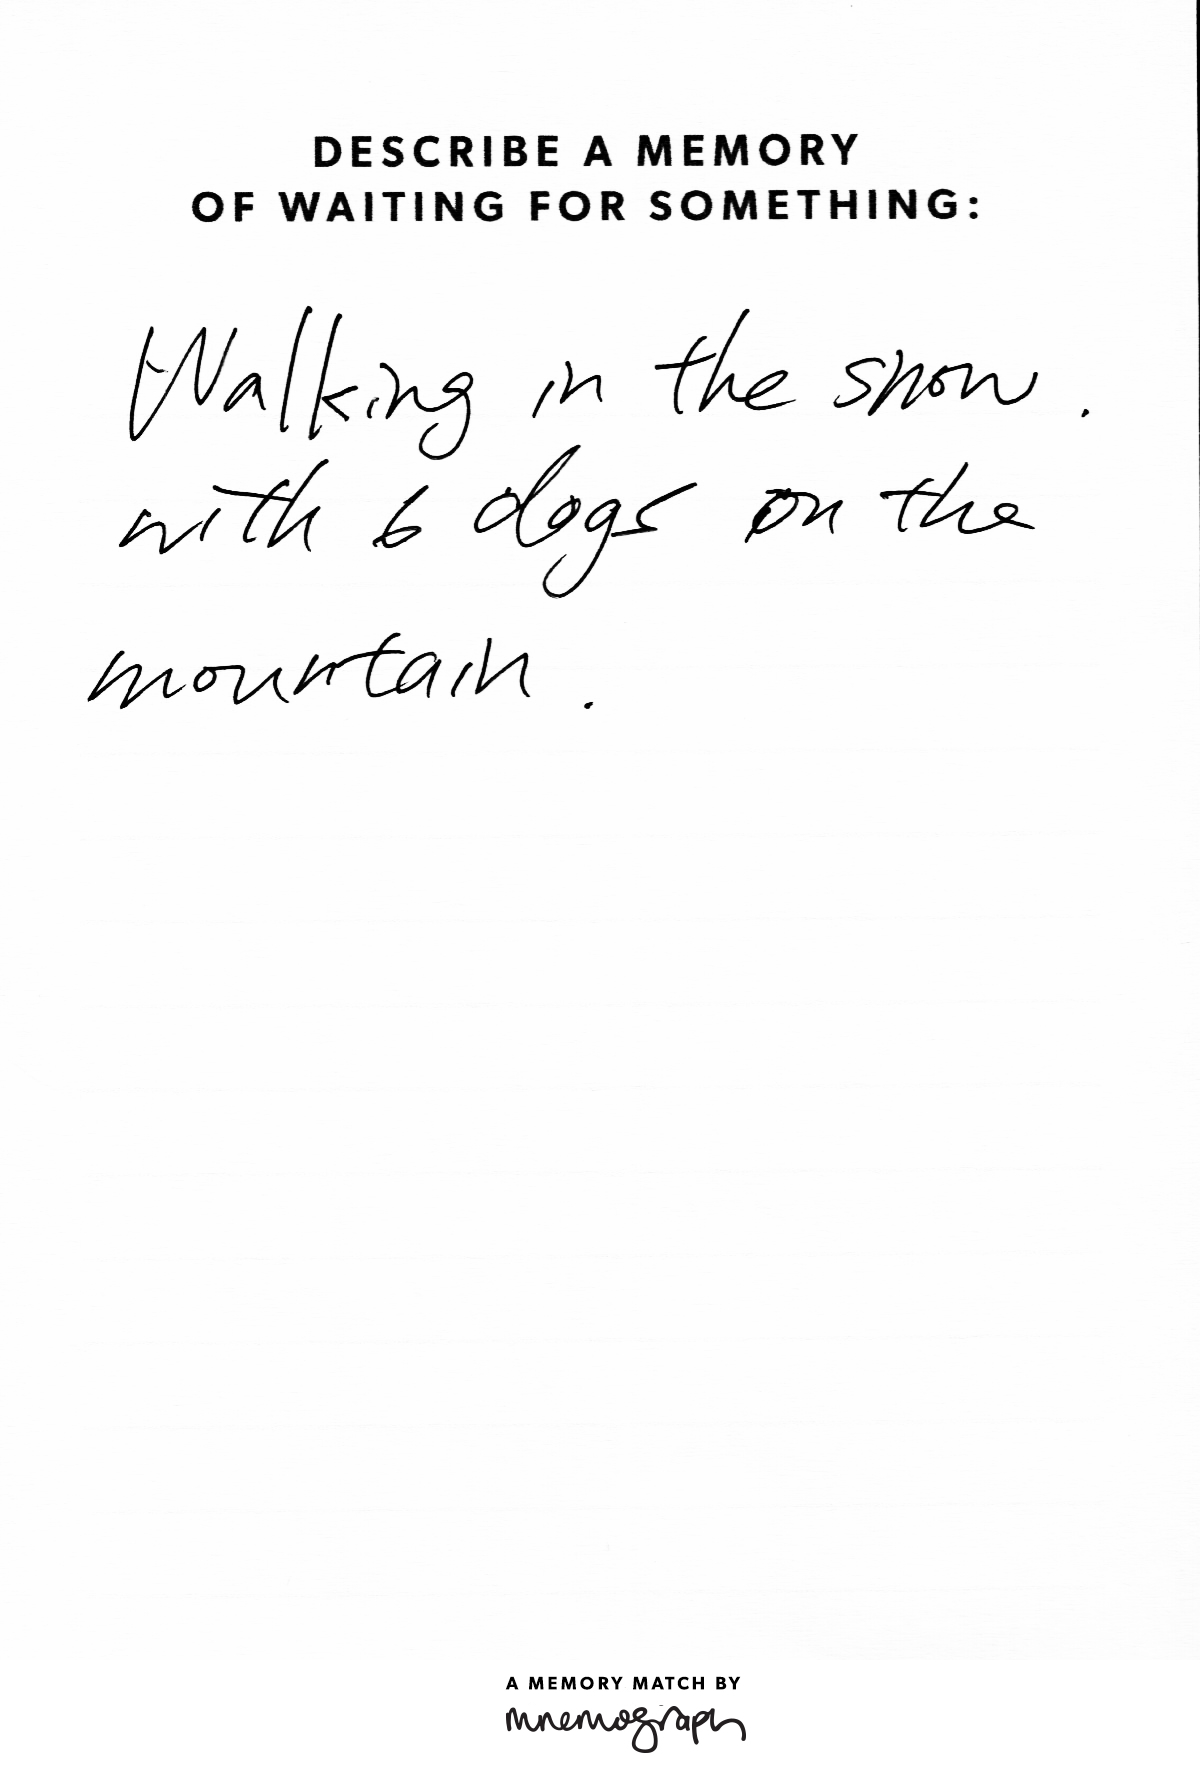 DESCRIBE A MEMORY
OF WAITING FOR SOMETHING:
Walking in the snow.
with 6 dogs on the
mountain.
A MEMORY MATCH BY
mnemograph